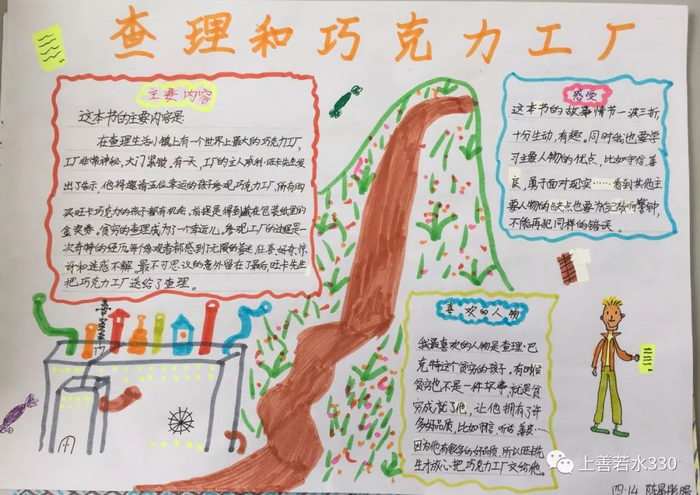 查理和巧克力工厂
主要内容
这本书的主要内容是
在查理生活小镇上有一个世界上最大的巧克力工厂,
工厂非常神秘,大门紧锁,有一天,工厂的主人威利·旺卡先生发
出了告示,他将邀请五位幸运的孩子参观巧克力工厂,所有购
买旺卡巧克力的孩子都有机会,前提是得到藏在包装纸里的
金奖券。贫穷的查理成为了一个幸运儿。参观工厂的过程是一
次奇特的
不解 最不可思议的意外留在了最后,旺卡先生
把巧克力工厂送给了查理。
感受
这本书的故事情节一波三折,
十分生动,有趣。同时我也要学
习主要人物的优点,比如守信、善
良,勇于面对现实……看到其他主
要人物的缺点也要为自己敲响警钟,
不能再犯同样的错误。
喜欢的人物
我最喜欢的人物是查理·巴
克特这个贫穷的孩子,有时候
贫穷也不是一件坏事,就是贫
穷成就了他,让他拥有了许
多好品质,比如
因为他有
生才放心把巧克力工厂交给他。
上善若水330
四.14